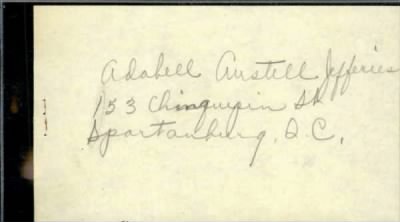 Adabell Austell Jefferies
153 Chinquepin St
Spartanburg, S.C.